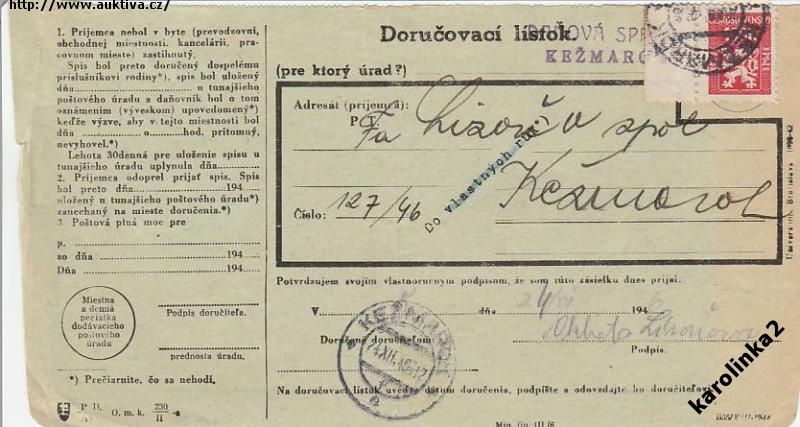 http://www.auktiva.cz/
1. Príjemca nebol v byte (prevodzovni,
obchodnej miestnosti, kancelárii, pra-
covnom mieste) zastihnutý.
Spis bol preto doručený dospelému
príslušníkovi rodiny*), spis bol uložený
dňa............ u tunajšieho
poštového úradu a daňovník bol o tom
oznámením (výveskom) upovedomený*)
keďže výzve, aby v tejto miestnosti bol
dňa............o.........hod. prítomný,
nevyhovel.*)
Lehota 30denná pre uloženie spisu u
tunajšieho úradu uplynula dňa............
2. Príjemca odoprel prijať spis. Spis
bol preto dňa............194......
uložený u tunajšieho poštového úradu*)
zanechaný na mieste doručenia.*)
3. Poštová plná moc pre
p.
so dňa............194......
Dňa............194......
Miestna
a denná
pečiatka
dodávacieho
poštového
úradu
Podpis doručiteľa.
prednosta úradu.
*) Prečiarnite, čo sa nehodí.
P. D.
O. m. k. 230/II -a
Doručovací lístok.
KEŽMARO
(pre ktorý úrad?)
ČESKOSLOVENSKO
Adresát (príjemca):
Fa Lizoň a spol
Do vlastných rúk
Kežmarok
Číslo: 127/46
Potvrdzujem svojím vlastnoručným podpisom, že som túto zásielku dnes prijal.
V............dňa 24/XII 194
Doručené doručiteľom:
Podpis.
KEŽMAROK
24.XII.46-12
Na doručovací lístok uveďte dátum doručenia, podpíšte a odovzdajte ho doručiteľovi
Min. fin. III/6
karolinka2